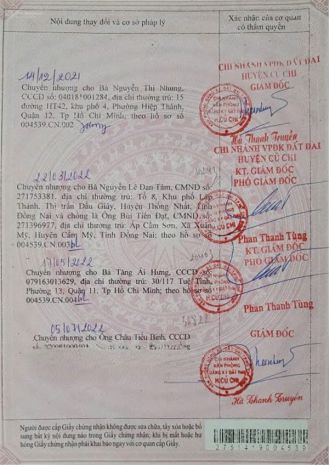 Nội dung thay đổi và cơ sở pháp lý
Xác nhận của cơ quan
có thẩm quyền
14/12/2021
Chuyển nhượng cho Bà Nguyễn Thị Nhung,
CCCD số: 040181001284, địa chỉ thường trú: 15
đường HT42, khu phố 4, Phường Hiệp Thành,
Quận 12, Tp Hồ Chí Minh; theo hồ sơ số
004539.CN.002
CHI NHÁNH VPĐK ĐẤT ĐAI
HUYỆN CỦ CHI
GIÁM ĐỐC
Hà Thanh Truyền
22/03/2022
Chuyển nhượng cho Bà Nguyễn Lê Đan Tâm, CMND số
271753381, địa chỉ thường trú: Tổ 8, Khu phố Lập
Thành, Thị trấn Dầu Giây, Huyện Thống Nhất, Tỉnh
Đồng Nai và chồng là Ông Bùi Tiến Đạt, CMND số:
271396927, địa chỉ thường trú: Ấp Cẩm Sơn, Xã Xuân
Mỹ, Huyện Cẩm Mỹ, Tỉnh Đồng Nai; theo hồ sơ số
004539.CN.003
CHI NHÁNH VPĐK ĐẤT ĐAI
HUYỆN CỦ CHI
KT. GIÁM ĐỐC
PHÓ GIÁM ĐỐC
Phan Thanh Tùng
17/05/2022
Chuyển nhượng cho Bà Tăng Ái Hưng, CCCD số
079163013629, địa chỉ thường trú: 30/117 Tuệ Tĩnh,
Phường 13, Quận 11, Tp Hồ Chí Minh; theo hồ sơ số
004539.CN.004
KT.GIÁM ĐỐC
PHÓ GIÁM ĐỐC
Phan Thanh Tùng
05/07/2022
Chuyển nhượng cho Ông Châu Tiểu Bình, CCCD
GIÁM ĐỐC
CHI NHÁNH
VĂN PHÒNG
ĐĂNG KÝ ĐẤT ĐAI
H.CỦ CHI
Hà Thanh Truyền
Người được cấp Giấy chứng nhận không được sửa chữa, tẩy xóa hoặc bổ
sung bất kỳ nội dung nào trong Giấy chứng nhận; khi bị mất hoặc hư
hỏng Giấy chứng nhận phải khai báo ngay với cơ quan cấp Giấy.